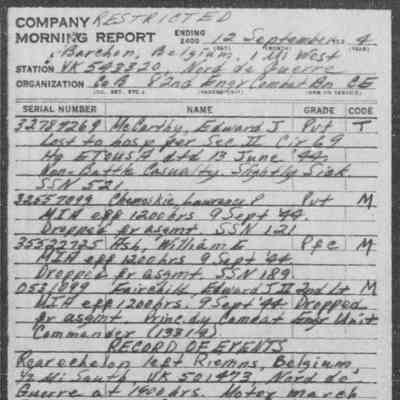 COMPANY RESTRICTED
MORNING REPORT ENDING 2400 12 September 4
(DAY) (MONTH) (YEAR)
Barchon, Belgium, 1 Mi West
STATION VK 543320 Nord de Guerre
ORGANIZATION Co B 82nd Engr Combat Bn CE
SERIAL NUMBER NAME GRADE CODE
32787269 McCarthy, Edward J Pvt T
Lost to hosp per Sec II Cir 69
Hq ETOUSA dtd 13 June '44.
Non-Battle Casualty Slightly Sick.
SSN 521
32557099 Lawrence P Pvt M
MIA eff 1200hrs 9 Sept '44.
Dropped fr asgmt. SSN 121
35522725 Ash, William E Pfc M
MIA eff 1200hrs 9 Sept '44.
Dropped fr asgmt. SSN 189.
Fairchild, Edward J II 2nd Lt M
MIA eff 1200hrs. 9 Sept '44 Dropped
fr asgmt. Prin dy Combat Engr Unit
Commander (1331).
RECORD OF EVENTS
Rear echelon left Riemns, Belgium
1/2 Mi South VK 501473 Nord de
Guerre at 1400hrs. Motor march